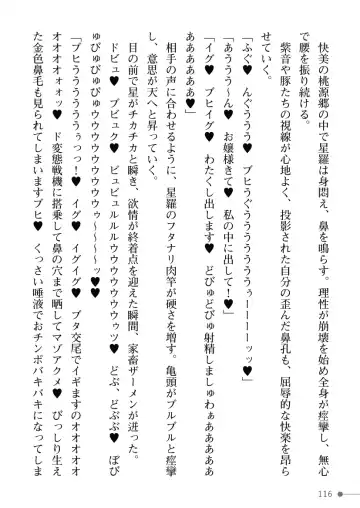 快美の桃源郷の中で星羅は身悶え、鼻を鳴らす。理性が崩壊を始め全身が痙攣し、無心
で腰を振り続ける。
紫音や豚たちの視線が心地よく、投影された自分の歪んだ鼻孔も、屈辱的な快楽を昂ら
せていく。
「ふぐ♥　んぐううう♥　プヒうぐうううううううぅーーーーッッ♥」
「あうううう～ん♥　お嬢様きて♥　私の中に出して！♥」
「イグ♥　プヒイグ♥　わたくし出します♥　どびゅどびゅ射精しましゅわぁああああああ
ああああああ♥」
相手の声に合わせるように、星羅のフタナリ肉竿が硬さを増す。亀頭がプルプルと痙攣
し、意思が天へと昇っていく。
目の前で星がチカチカと瞬き、欲情が終着点を迎えた瞬間、家畜ザーメンが迸った。
ドビュ♥　ブビュク♥　ビュビュルルルウウウウウウウウウゥッ♥　どぶ、どぶぶ♥　ぼび
ゅびゅびゅびゅウウウウウウウウウウゥゥ～～～～～ッ♥♥
「プヒうううううううぅぅっっ！♥　イグ♥　イグイグ♥　ブタ交尾でイギますのオオオオオ
オオオオオォォッ♥　ド変態戦機に搭乗して鼻の穴まで晒してマゾアクメ♥　びっしり生え
た金色鼻毛も見られてしまいますプヒ♥　くっさい唾液でおチンポバキバキになってしま
116